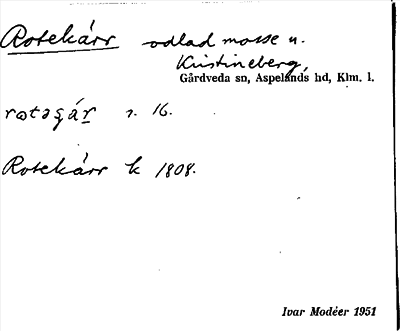 Rotekärr odlad mosse u.
Kristineberg,
Gårdveda sn, Aspelands hd, Klm. l.
rotəgár 1. 16.
Rotekärr k 1808.
Ivar Modéer 1951